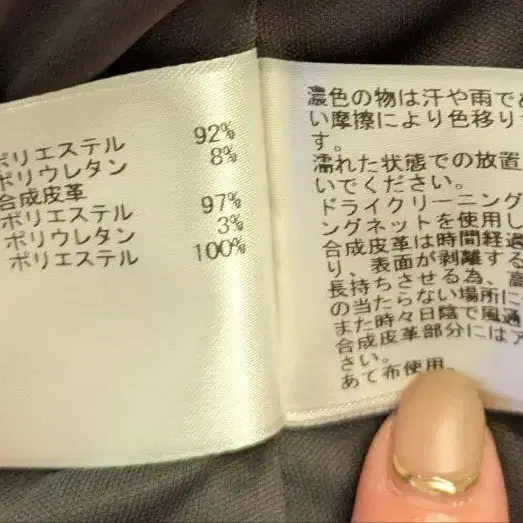 ポリエステル 92%
ポリウレタン 8%
合成皮革
ポリエステル 97%
ポリウレタン 3%
ポリエステル 100%
濃色の物は汗や雨で
い摩擦により色移り
す。
濡れた状態での放置
いでください。
ドライクリーニング
ングネットを使用し
合成皮革は時間経過
り、表面が剥離する
長持ちさせる為、高
の当たらない場所に
また時々日陰で風通
合成皮革部分にはア
さい。
あて布使用。